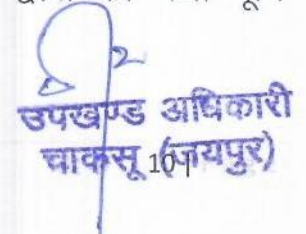 उपखण्ड अधिकारी
चाकसू (जयपुर)
10